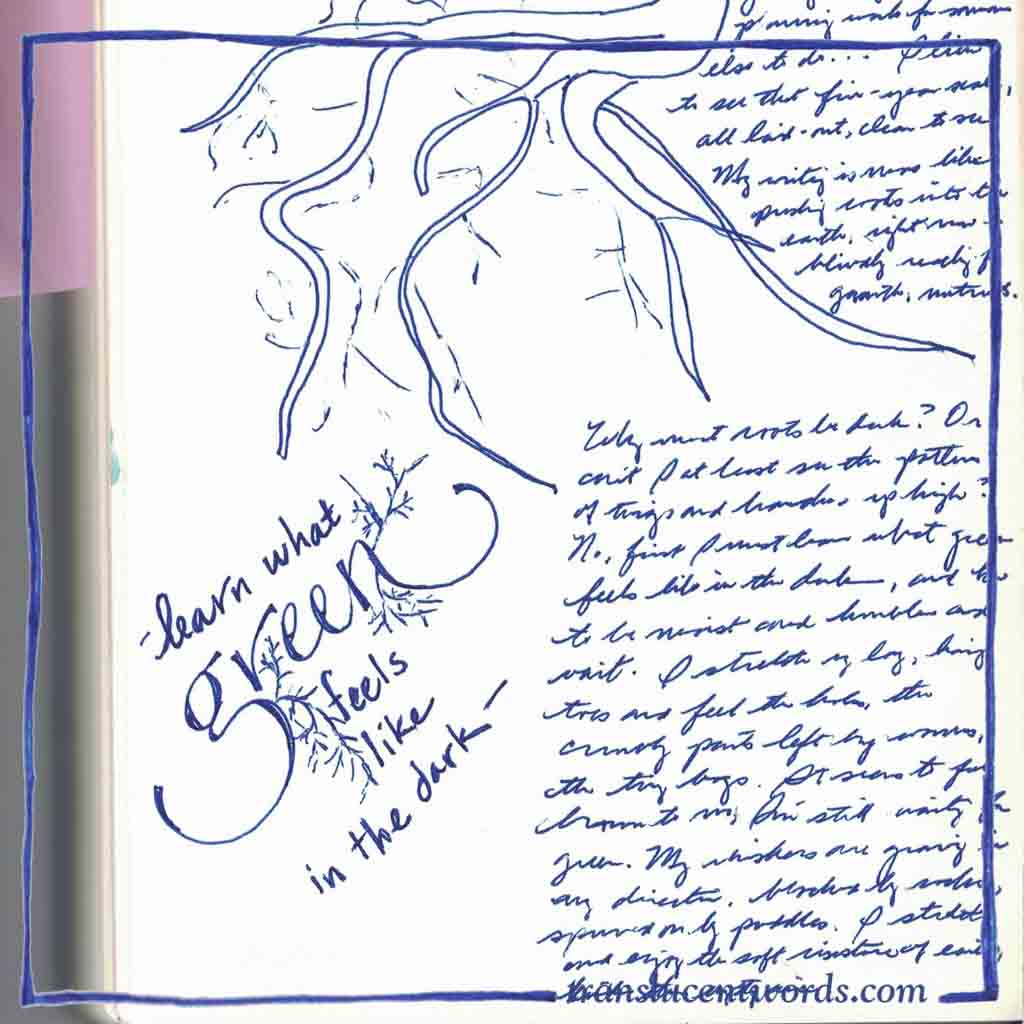 else to do... I
to see that five-year
all laid-out, clear to see
My writing is more like
pushing roots into
earth, right now
blindly reaching
growth,
Why must roots be dark? Or
can't I at least see the pattern
of twigs and branches up high?
No, first I must learn what green
feels like in the dark, and
to be moist and humble and
wait. I stretch my long,
toes and feel the
crumbly parts left by worms,
the tiny bugs. It seems to
brown to me, I'm still waiting
green. My whiskers are growing in
any direction, blocked by rocks,
spurred on by puddles. I stretch
and enjoy the soft moisture of
-learn what
green
feels
like
in the dark-
translucentwords.com